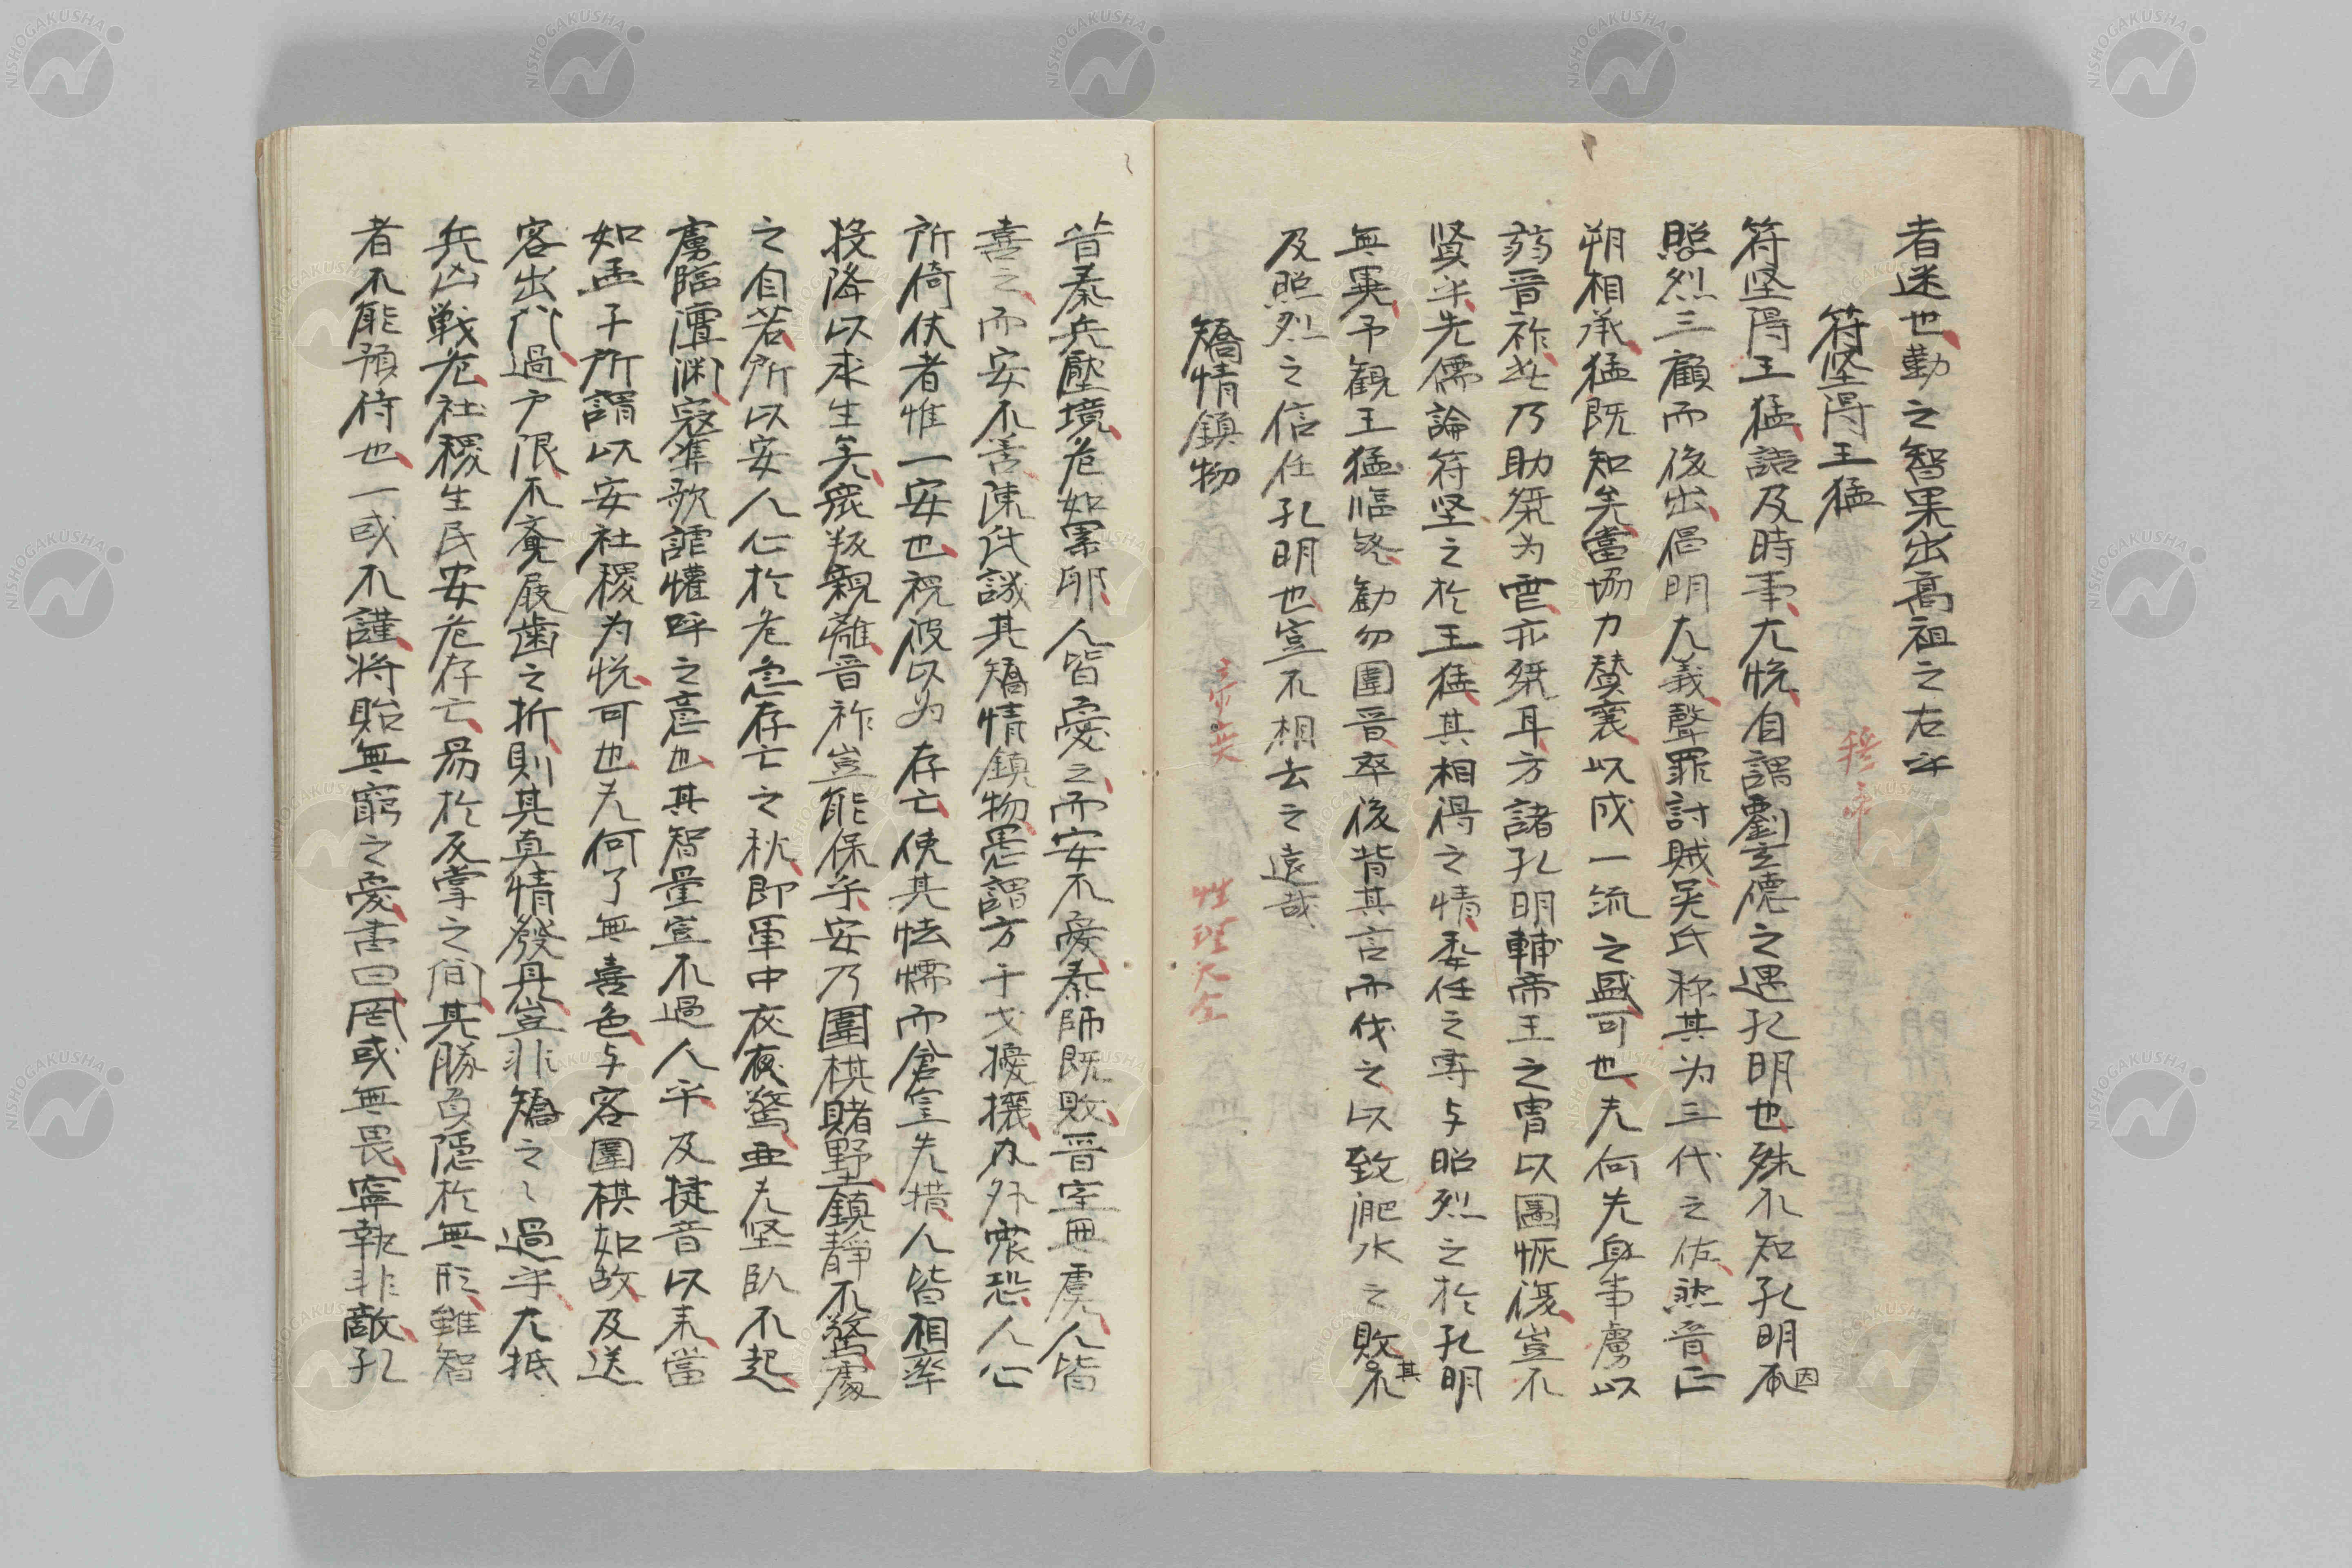 者迷也勤之智果出高祖之右乎
符坚得王猛 穆帝
符坚得王猛語及時事大悦自謂劉玄德之遇孔明也殊不知孔明本因
昭烈三顧而後出倡明大義聲罪討賊吴氏称其为三代之佐然晋正
朔相承猛既知矣當協力賛襄以成一流之盛可也夫何先身事虜以
弱晋祚此乃助桀为虐亦桀耳方諸孔明輔帝王之胄以圖恢復豈不
賢乎先儒論符坚之於王猛其相得之情委任之専与昭烈之於孔明
無異予観王猛臨终勧勿圖晋卒後背其言而伐之以致淝水之敗其不
及昭烈之信任孔明也豈不相去之遠哉
矯情鎮物 帝奕 性理大全
昔秦兵壓境危如累卵人皆憂之而安不憂秦師既敗晋室無虞人皆
喜之而安不喜陳氏譏其矯情鎮物愚謂方干戈擾攘内外震恐人心
所倚伏者惟一安也視彼以为存亡使其怯懦而倉皇失措人皆相率
投降以求生矣衆叛親離晋祚豈能保乎安乃圍棋賭野墅鎮静不驚處
之自若所以安人心於危急存亡之秋即軍中夜驚亜夫坚臥不起
虜臨澶渊寇準歌謔懽呼之意也其智量豈不過人乎及捷音以来當
如孟子所謂以安社稷为悦可也夫何了無喜色与客圍棋如故及送
客出門過户限不覺屐歯之折則其真情發丹豈非矯之之過乎大抵
兵凶戦危社稷生民安危存亡易於反掌之间其勝負隠於無形雖智
者不能預待也一或不謹将貽無窮之憂書曰罔或無畏寧執非敵孔